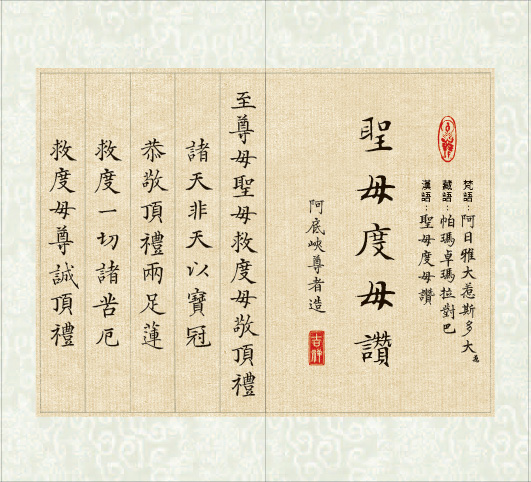 梵語：阿日雅大惹斯多大
藏語：帕瑪卓瑪拉對巴
漢語：聖母度母讚
聖母度母讚
阿底峽尊者造
吉祥
至尊母聖母救度母敬頂禮
諸天非天以寶冠
恭敬頂禮兩足蓮
救度一切諸苦厄
救度母尊誠頂禮